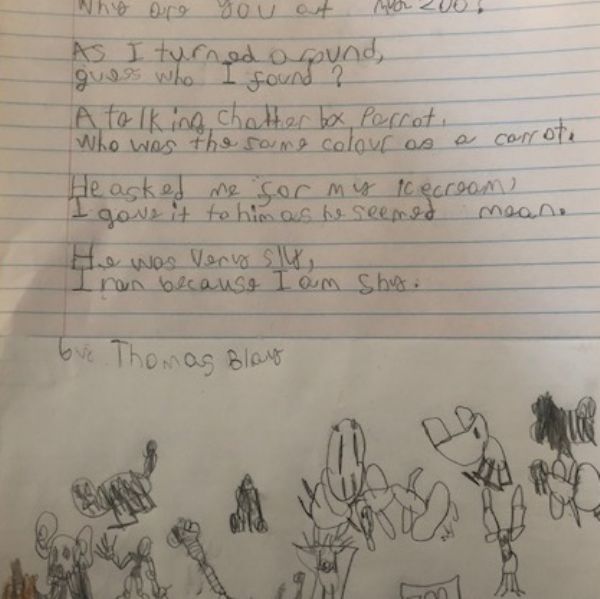 Who are you at zoo?
As I turned around,
guess who I found?
A talking chatter box Parrot,
Who was the same colour as a carrot.
He asked me for my icecream,
I gave it to him as he seemed mean.
He was very sly,
I ran because I am shy.
by: Thomas Blay
ZOO